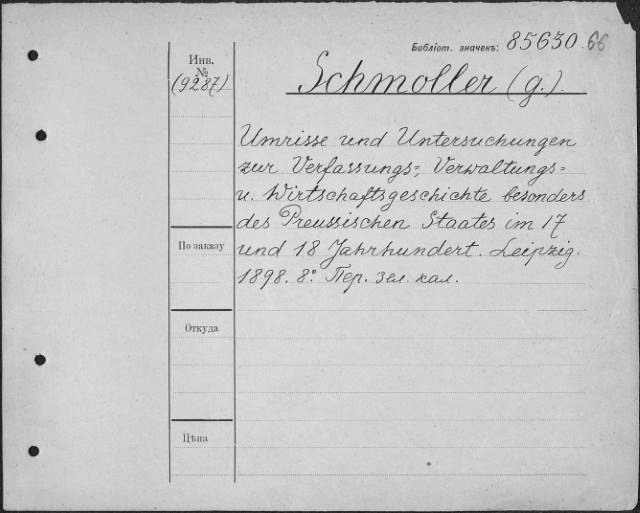 Библіот. значекъ: 85630.66
Инв.
№
(9287)
Schmoller (G.).
Umrisse und Untersuchungen
zur Verfassungs=, Verwaltungs=
u. Wirtschaftsgeschichte besonders
des Preussischen Staates im 17
und 18 Jahrhundert. Leipzig.
1898. 8° Пер. зел. кал.
По заказу
Откуда
Цѣна